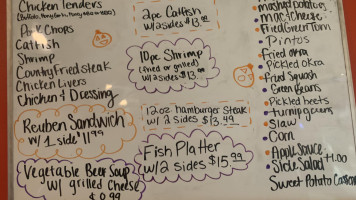 Chicken Tenders
Pork Chops
Catfish
Shrimp
Country Fried steak
Chicken Livers
Chicken & Dressing
Reuben Sandwich
w/ 1 side $11.99
Vegetable Beef Soup
w/ grilled cheese
2pc Catfish
w/2 sides $13.
10pc Shrimp
(fried or grilled)
w/2 sides $13.
12oz hamburger steak
w/ 2 sides $13.49
Fish Platter
w/2 sides $15.99
mashed potatoes
mac & cheese
Fried Green Tom
Pintos
Fried Okra
Pickled Okra
Fried Squash
Green Beans
Pickled beets
turnip greens
Slaw
Corn
Apple Sauce
Side Salad
Sweet Potato Casser